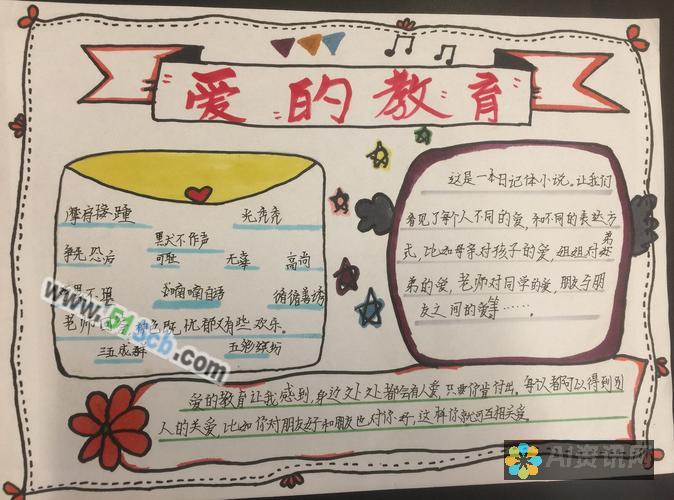 爱的教育
摩肩接踵 光秃秃
争先恐后 默不作声 可耻 无辜 高尚
喃喃自语 循循善诱
老师 既忧郁又有些欢乐。
三五成群 五彩缤纷
这是一本日记体小说。让我们
看见了每个人不同的爱，和不同的表达方
式，比如母亲对孩子的爱，姐姐对弟
弟的爱，老师对同学的爱，朋友与朋
友之间的爱等……。
爱的教育让我感到，身边处处都会有人爱，只要你肯付出。每人都可以得到别
人的关爱，比如你对朋友好和朋友也对你好，这样你就可互相关爱。
www.51scb.com
AI资讯网